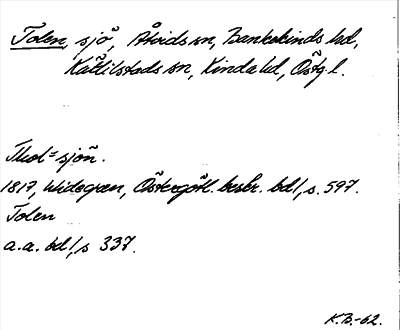 Tolen, sjö, Åtvids sn, Bankekinds hd,
Kättilstads sn, Kinda hd, Östg. l.
Thol=sjön.
1817, Widegren, Östergötl. beskr. bd 1, s. 597.
Tolen
a.a. bd 1, s 337.
K.B.-62.